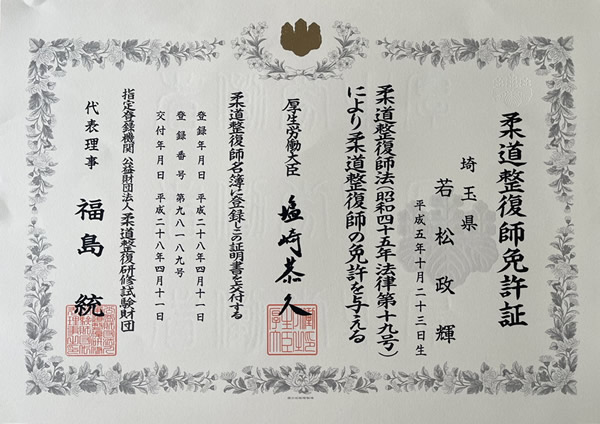 柔道整復師免許証
埼玉県
若松政輝
平成五年十月二十三日生
柔道整復師法(昭和四十五年法律第十九号)
により柔道整復師の免許を与える
厚生労働大臣
塩崎恭久
柔道整復師名簿に登録しこの証明書を交付する
登録年月日 平成二十八年四月十一日
登録番号 第九八一八九号
交付年月日 平成二十八年四月十一日
指定登録機関 公益財団法人 柔道整復研修試験財団
代表理事 福島統